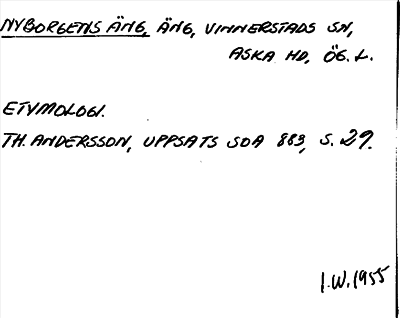 NYBORGENS ÄNG, ÄNG, VINNERSTADS SN,
ASKA HD, ÖG. L.
ETYMOLOGI.
TH. ANDERSSON, UPPSATS SOA 883, S. 29.
I.W. 1955